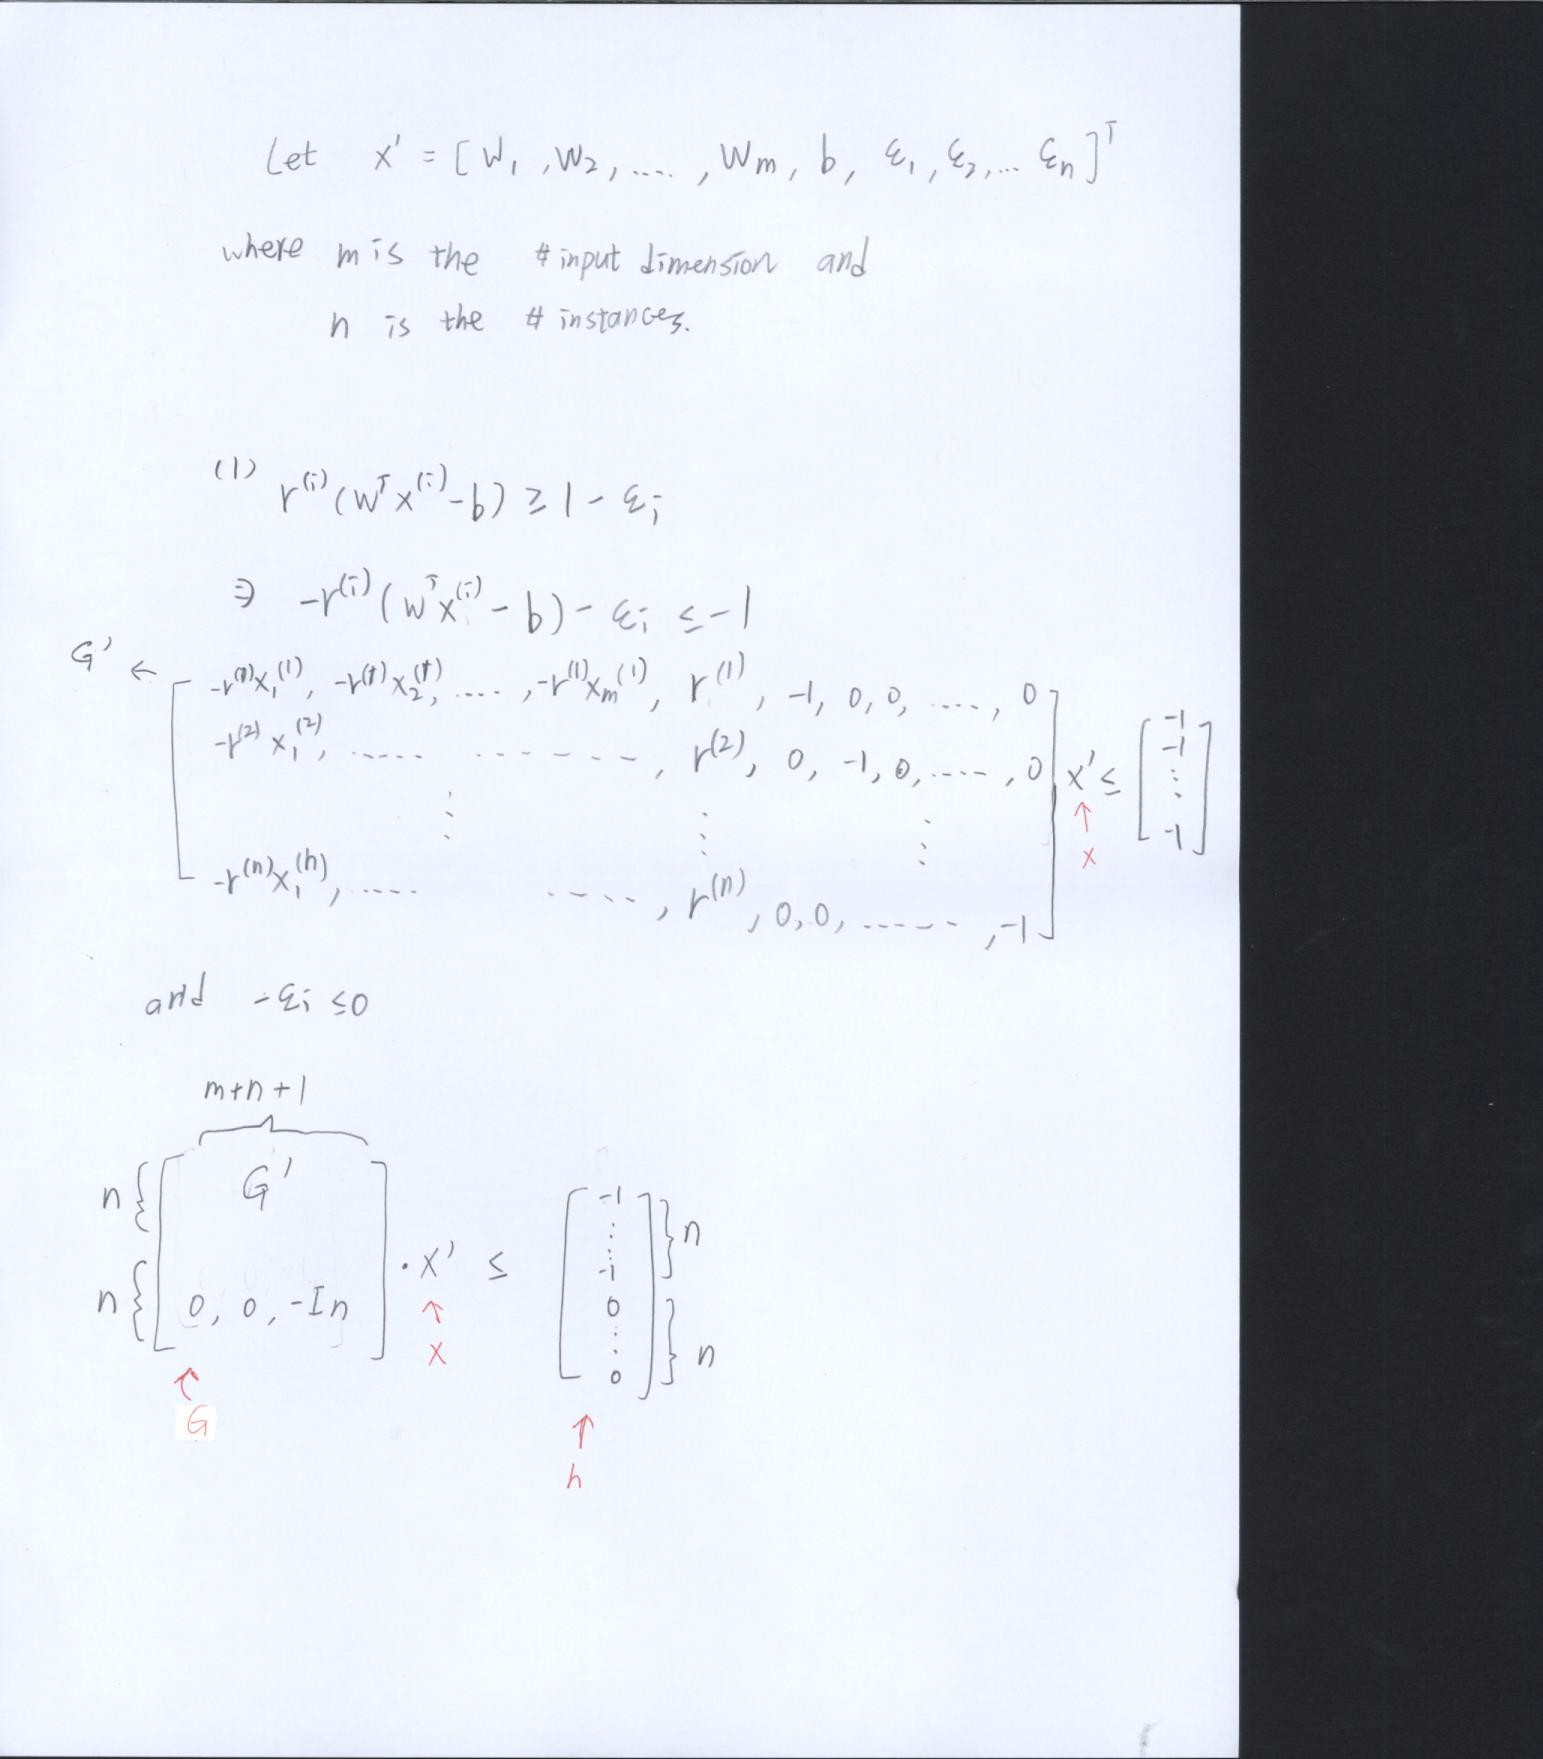 Let x' = [w₁, w₂, ...., wₘ, b, ε₁, ε₂, ... εₙ]ᵀ
where m is the # input dimension and
n is the # instances.
(1) r⁽ⁱ⁾(wᵀx⁽ⁱ⁾ - b) ≥ 1 - εᵢ
⇒ -r⁽ⁱ⁾(wᵀx⁽ⁱ⁾ - b) - εᵢ ≤ -1
G' ← [ -r⁽¹⁾x₁⁽¹⁾, -r⁽¹⁾x₂⁽¹⁾, ...., -r⁽¹⁾xₘ⁽¹⁾, r⁽¹⁾, -1, 0, 0, ...., 0
-r⁽²⁾x₁⁽²⁾, ..... ......., r⁽²⁾, 0, -1, 0, ...., 0
⋮ ⋮ ⋮
-r⁽ⁿ⁾x₁⁽ⁿ⁾, ..... ....., r⁽ⁿ⁾, 0, 0, ......, -1 ] x' ≤ [ -1 -1 ⋮ -1 ]
↑
x
and -εᵢ ≤ 0
m+n+1
n { [ G'
n { 0, 0, -Iₙ ] · x' ≤ [ -1 ⋮ -1 0 ⋮ 0 ] } n } n
↑ ↑ ↑
G x h